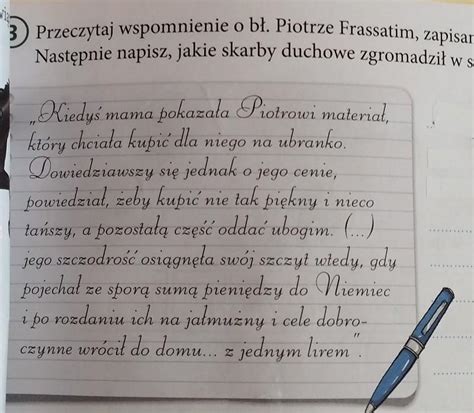 3 Przeczytaj wspomnienie o bł. Piotrze Frassatim,
Następnie napisz, jakie skarby duchowe zgromadził w
„Kiedyś mama pokazała Piotrowi materiał,
który chciała kupić dla niego na ubranko.
Dowiedziawszy się jednak o jego cenie,
powiedział, żeby kupić nie tak piękny i nieco
tańszy, a pozostałą część oddać ubogim. (...)
jego szczodrość osiągnęła swój szczyt wtedy, gdy
pojechał ze sporą sumą pieniędzy do Niemiec
i po rozdaniu ich na jałmużny i cele dobro-
czynne wrócił do domu... z jednym lirem".